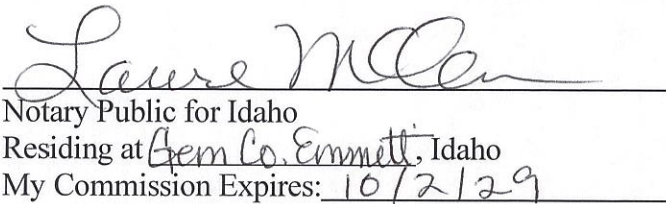 Notary Public for Idaho
Residing at Gem Co. Emmett, Idaho
My Commission Expires: 10/2/29